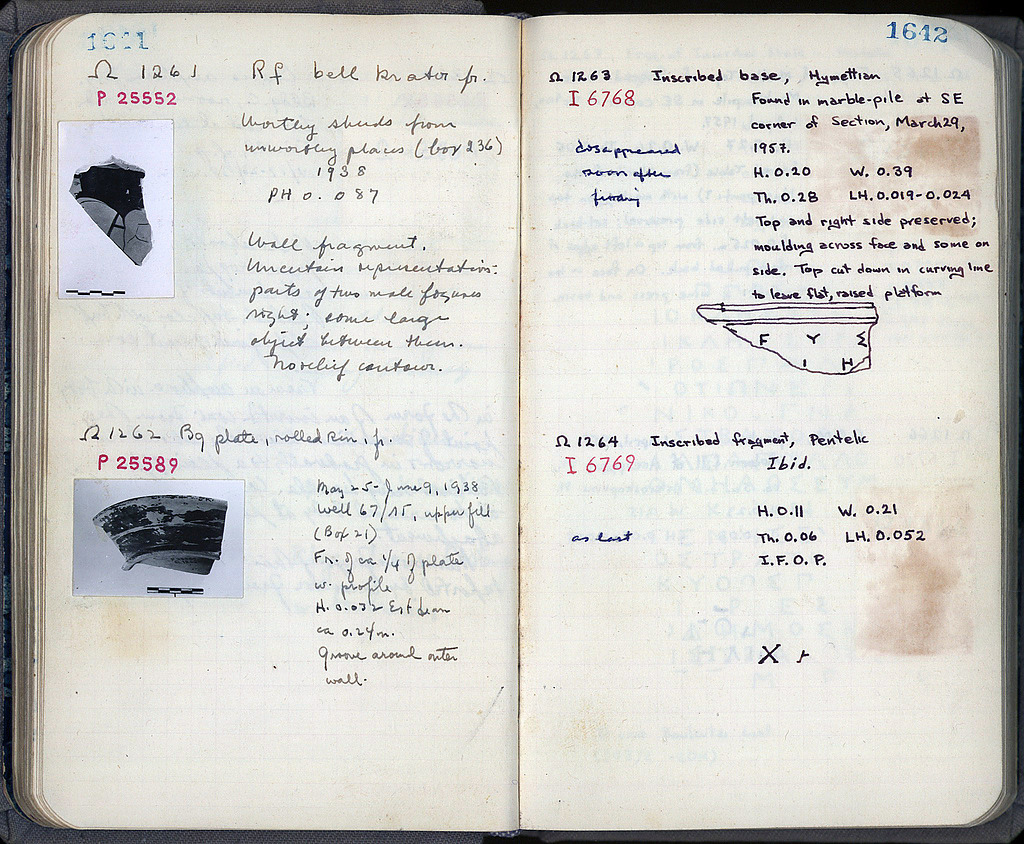 1641
Ω 1261 Rf bell krater fr.
P 25552
Worthy sherds from
unworthy places (box 236)
1938
PH 0.087
Wall fragment.
Uncertain representation:
parts of two male figures
right; some large
object between them.
No relief contour.
Ω 1262 Bg plate, rolled rim, fr.
P 25589
May 25-June 9, 1938
Well 67/ΙΕ, upper fill
(Box 21)
Fr. of ca 1/4 of plate
w. profile
H. 0.032 Est diam
ca 0.24m.
Groove around outer
wall.
1642
Ω 1263 Inscribed base, Hymettian
I 6768
Found in marble-pile at SE
corner of Section, March 29,
1957.
disappeared
soon after
finding
H. 0.20 W. 0.39
Th. 0.28 LH. 0.019-0.024
Top and right side preserved;
moulding across face and some on
side. Top cut down in curving line
to leave flat, raised platform
F Y Σ
I H
Ω 1264 Inscribed fragment, Pentelic
I 6769
Ibid.
H. 0.11 W. 0.21
as last
Th. 0.06 LH. 0.052
I.F.O.P.
X